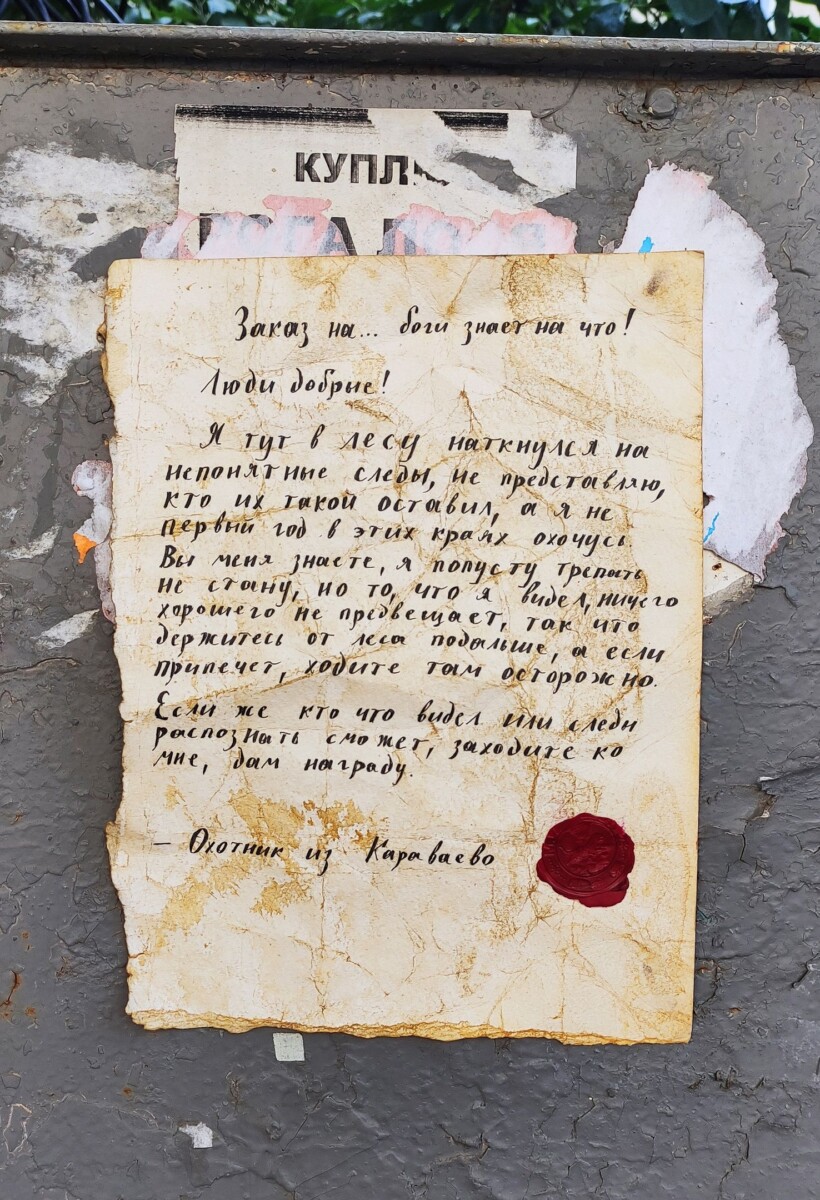 КУПЛ
РОГА
Заказ на... боги знает на что!
Люди добрые!
Я тут в лесу наткнулся на
непонятные следы, не представляю,
кто их такой оставил, а я не
первый год в этих краях охочусь.
Вы меня знаете, я попусту трепать
не стану, но то, что я видел, ничего
хорошего не предвещает, так что
держитесь от леса подальше, а если
припечет, ходите там осторожно.
Если же кто что видел или следы
распознать сможет, заходите ко
мне, дам награду.
— Охотник из Караваево